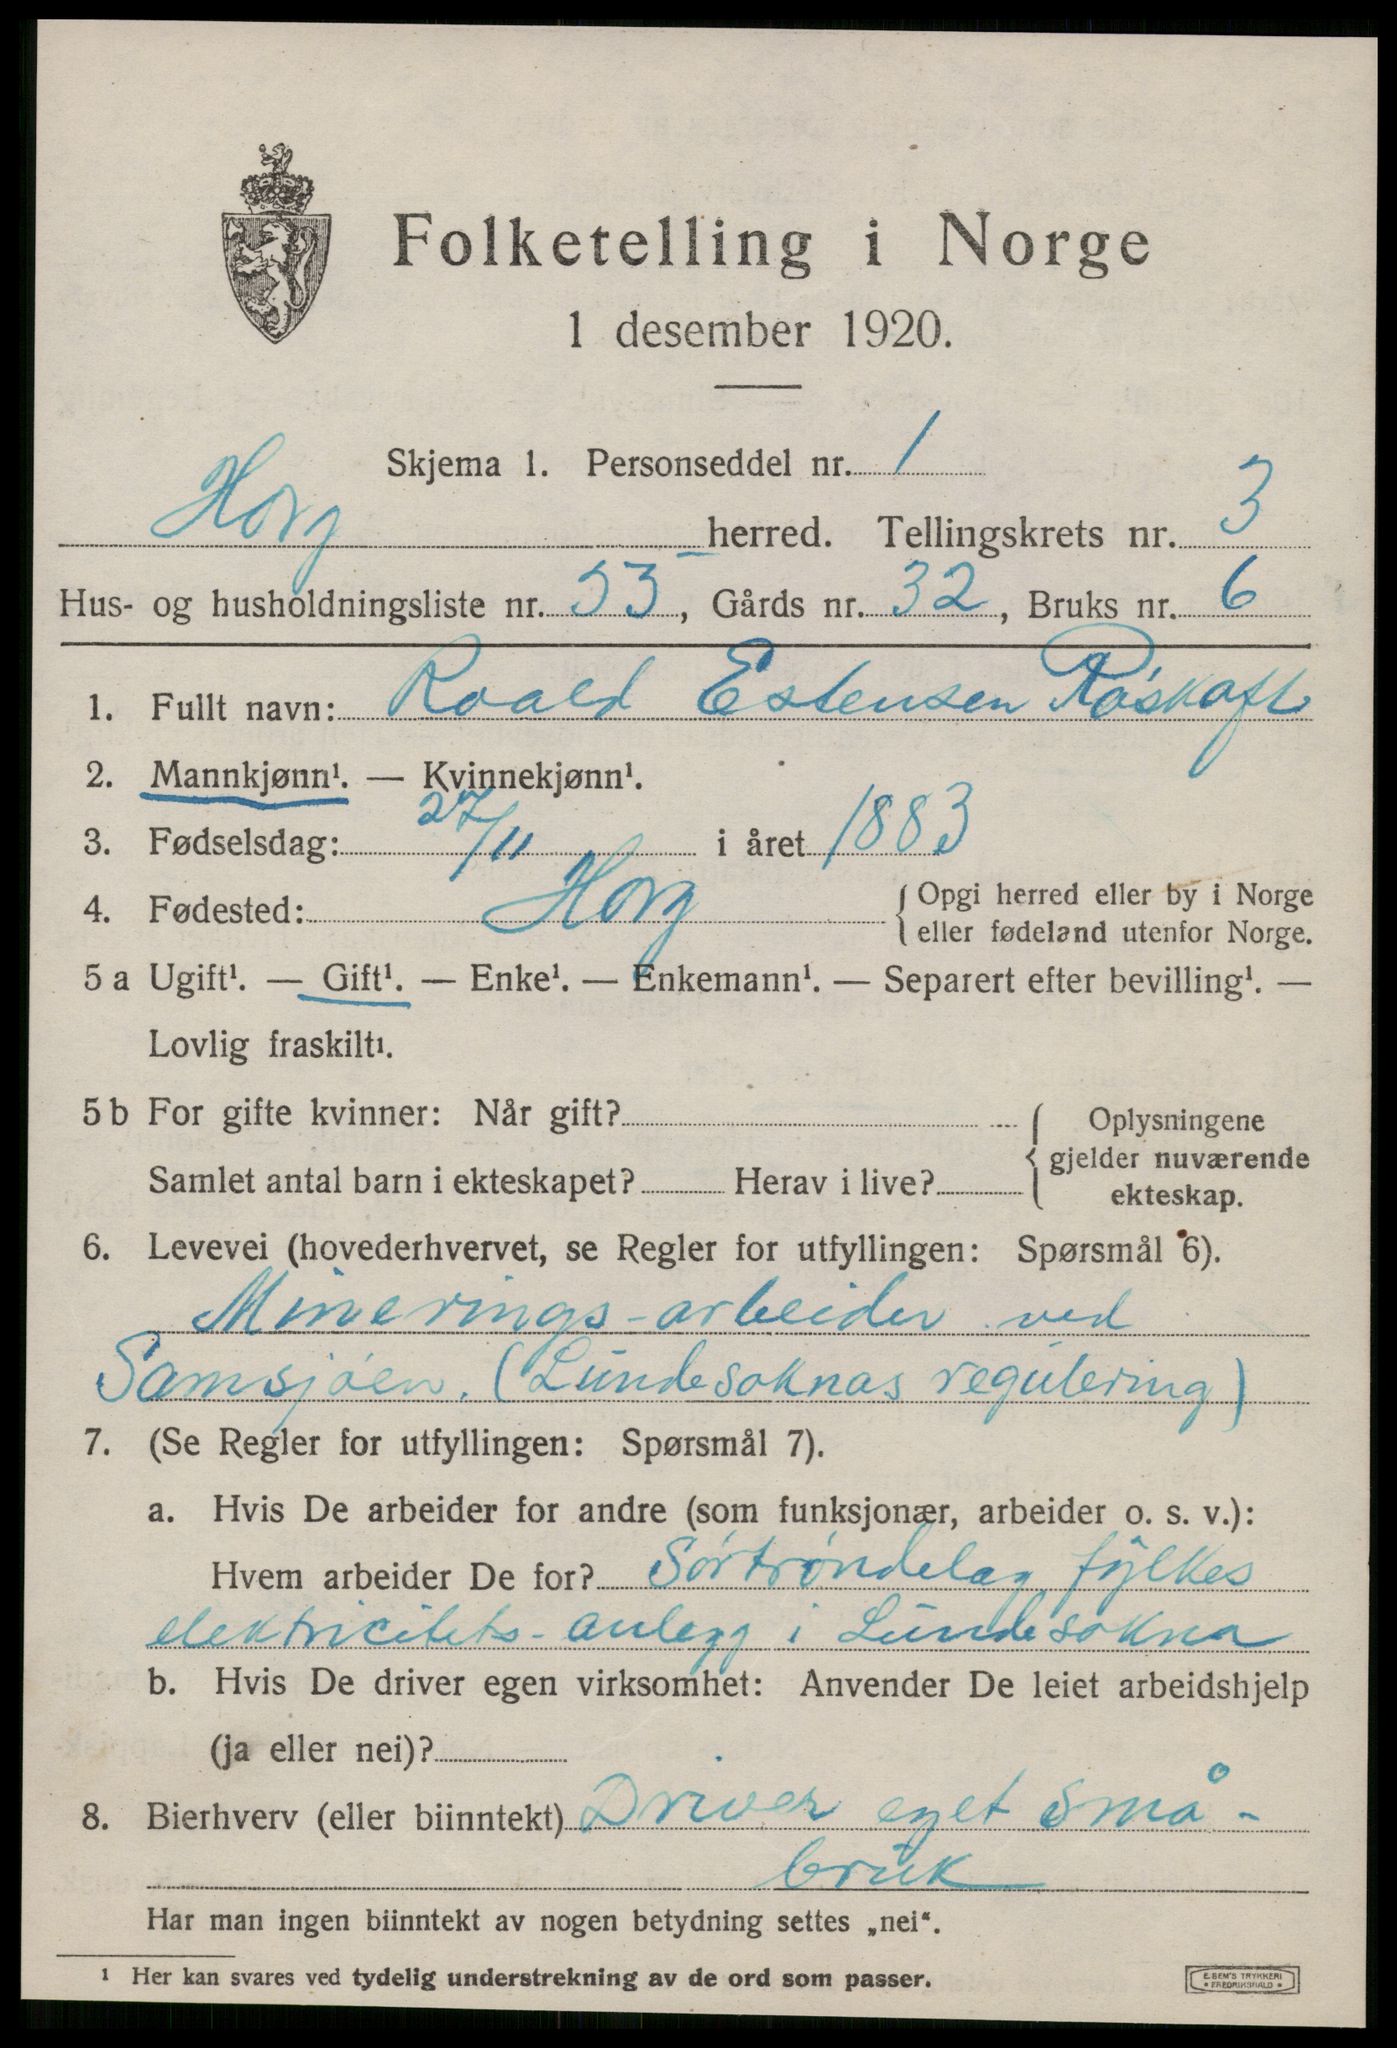 Folketelling i Norge
1 desember 1920.
Skjema 1. Personseddel nr. 1
Horg herred. Tellingskrets nr. 3
Hus- og husholdningsliste nr. 53, Gårds nr. 32, Bruks nr. 6
1. Fullt navn: Roald Estensen Røskaft
2. Mannkjønn¹. — Kvinnekjønn¹.
3. Fødselsdag: 27/11 i året 1883
4. Fødested: Horg { Opgi herred eller by i Norge
eller fødeland utenfor Norge.
5 a Ugift¹. — Gift¹. — Enke¹. — Enkemann¹. — Separert efter bevilling¹. —
Lovlig fraskilt¹.
5 b For gifte kvinner: Når gift? { Oplysningene
gjelder nuværende
Samlet antal barn i ekteskapet? Herav i live? ekteskap.
6. Levevei (hovederhvervet, se Regler for utfyllingen: Spørsmål 6).
Minerings-arbeider ved
Samsjøen. (Lundesoknas regulering)
7. (Se Regler for utfyllingen: Spørsmål 7).
a. Hvis De arbeider for andre (som funksjonær, arbeider o. s. v.):
Hvem arbeider De for? Sørtrøndelag fylkes
elektricitets-anlegg i Lundesokna
b. Hvis De driver egen virksomhet: Anvender De leiet arbeidshjelp
(ja eller nei)?
8. Bierhverv (eller biinntekt) Driver eget små-
bruk
Har man ingen biinntekt av nogen betydning settes „nei“.
¹ Her kan svares ved tydelig understrekning av de ord som passer.
E. SEM'S TRYKKERI
* FREDRIKSHALD *